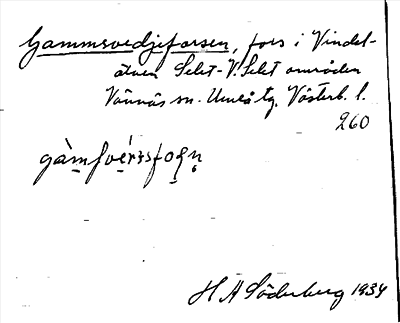 Gammsvedjeforsen, fors i Vindel-
älven Selet-V. Selet områden
Vännäs sn. Umeå tg. Västerb. l.
260
H A Söderberg 1934